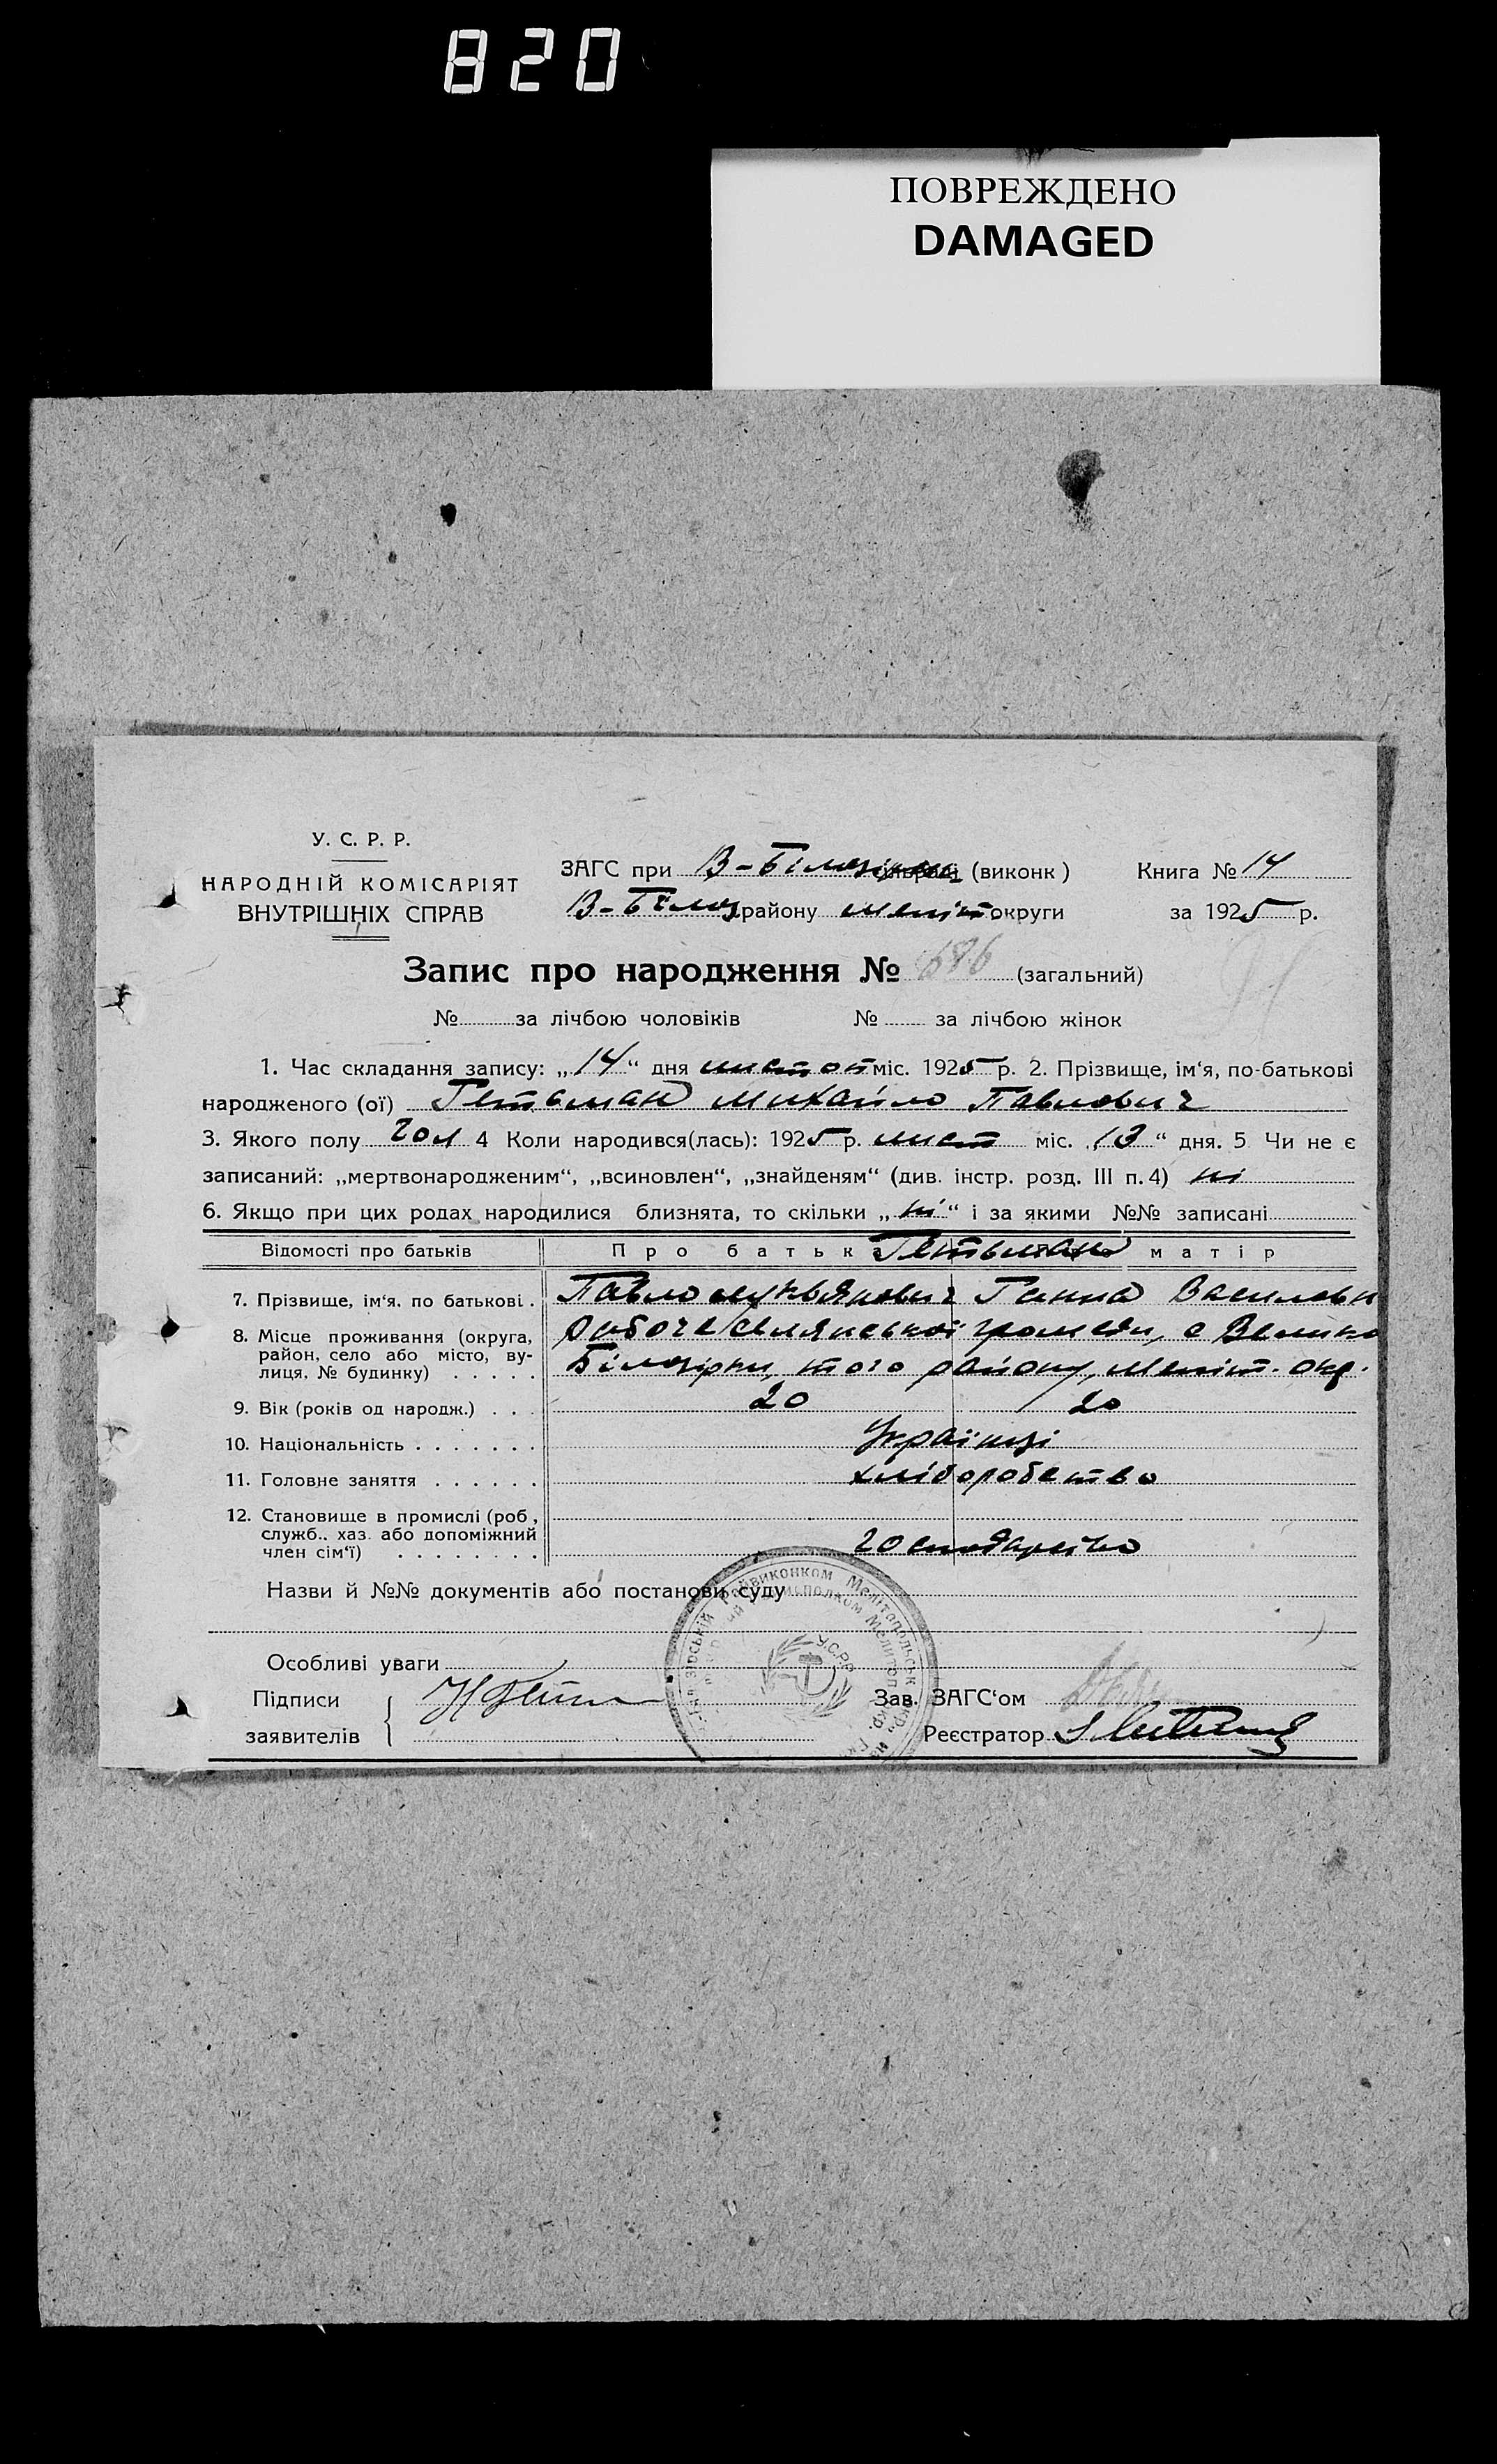 820
ПОВРЕЖДЕНО
DAMAGED
У. С. Р. Р.
НАРОДНІЙ КОМІСАРІЯТ
ВНУТРІШНІХ СПРАВ
ЗАГС при В-Білозірськ (виконк)
Книга № 14
В-Білоз району Меліт округи
за 1925 р.
Запис про народження № 686 (загальний)
№ за лічбою чоловіків № за лічбою жінок
1. Час складання запису: „14“ дня листоп міс. 1925 р. 2. Прізвище, ім‘я, по-батькові
народженого (ої) Гетьман Михайло Павлович
3. Якого полу чол 4 Коли народився(лась): 1925 р. лист міс. „13“ дня. 5 Чи не є
записаний: „мертвонародженим“, „всиновлен“, „знайденям“ (див. інстр. розд. III п. 4) ні
6. Якщо при цих родах народилися близнята, то скільки „ні“ і за якими №№ записані
Відомості про батьків Про батька Гетьман матір
7. Прізвище, ім‘я, по батькові. Павло Лукьянович Ганна Васильовн
8. Місце проживання (округа, район, село або місто, вулиця, № будинку)
Робоче селянської громади, с Велико
Білозірки, того району, Меліт. окр.
9. Вік (років од народж.) 20 20
10. Національність Українці
11. Головне заняття хліборобство
12. Становище в промислі (роб., служб., хаз. або допоміжний член сім‘ї)
Назви й №№ документів або постанови суду
Особливі уваги
Підписи
заявителів
Зав. ЗАГС‘ом
Реєстратор
У.С.Р.Р.